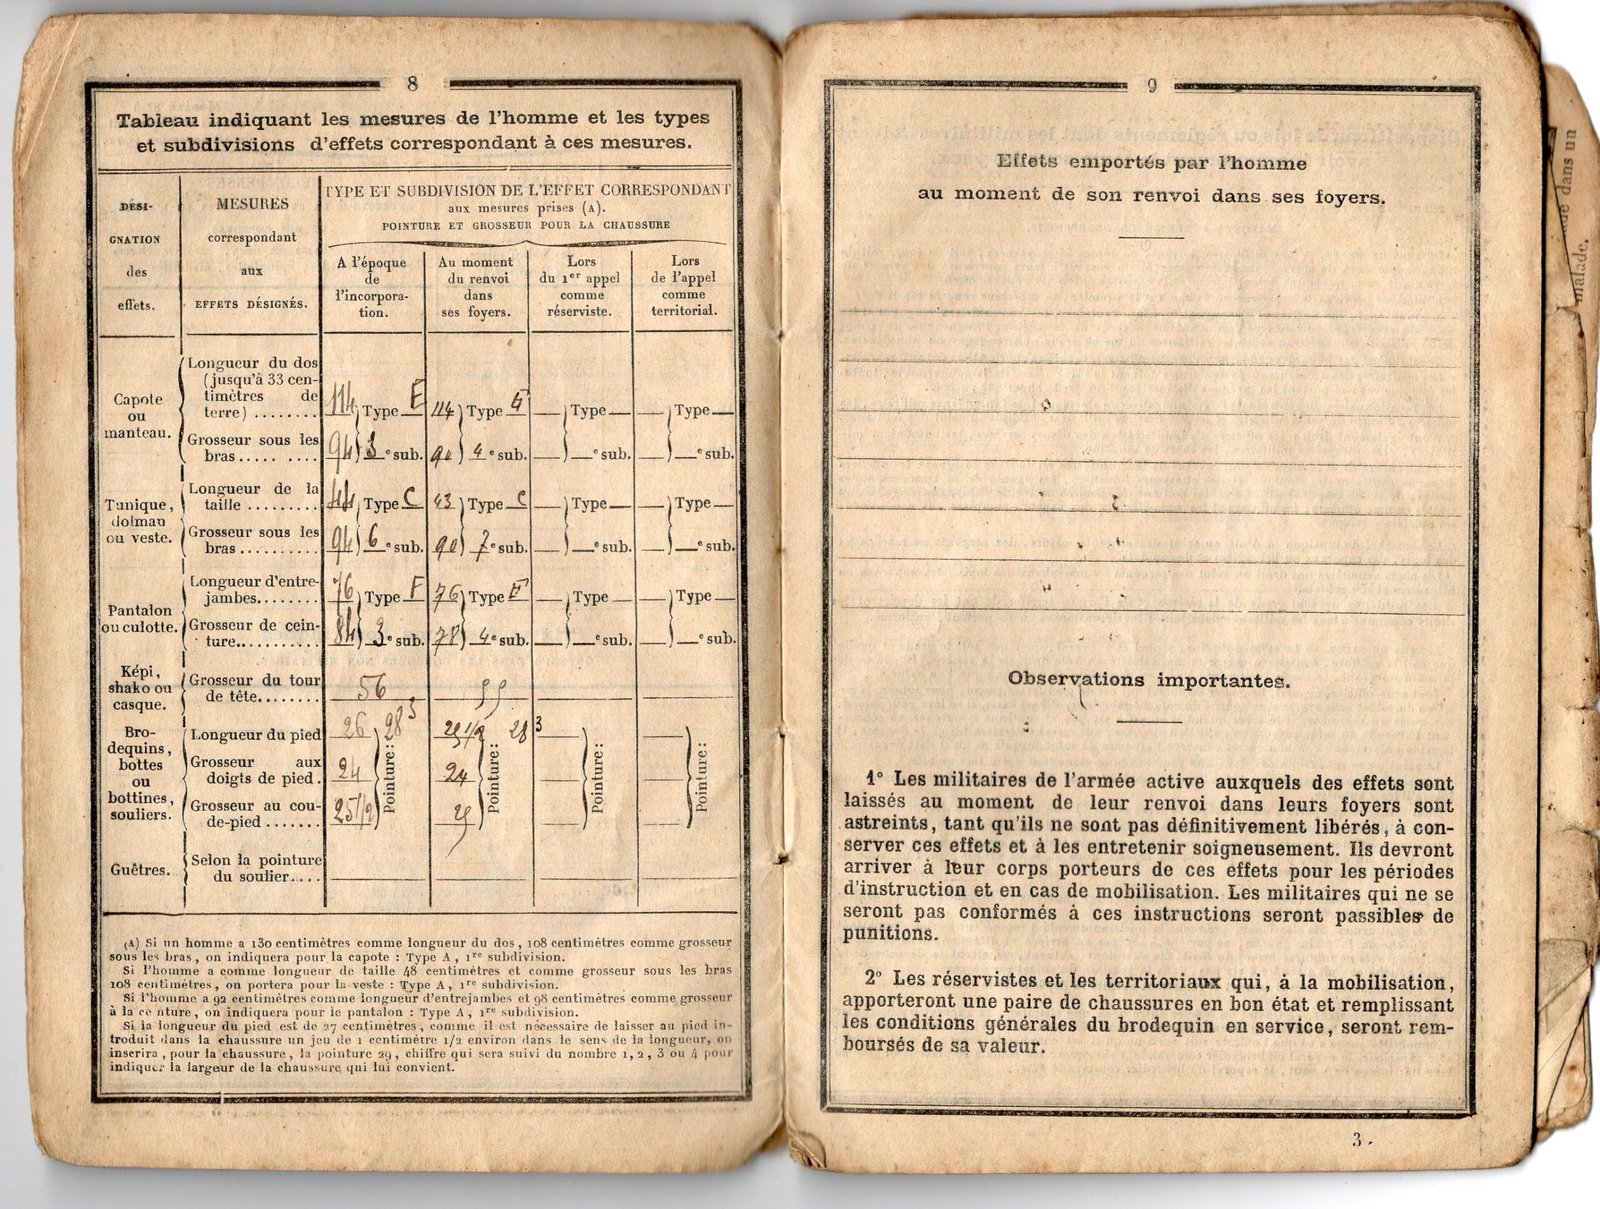 8
Tableau indiquant les mesures de l'homme et les types
et subdivisions d'effets correspondant à ces mesures.
DÉSI-
GNATION
des
effets.
MESURES
correspondant
aux
EFFETS DÉSIGNÉS.
TYPE ET SUBDIVISION DE L'EFFET CORRESPONDANT
aux mesures prises (A).
POINTURE ET GROSSEUR POUR LA CHAUSSURE
A l'époque
de
l'incorpora-
tion.
Au moment
du renvoi
dans
ses foyers.
Lors
du 1er appel
comme
réserviste.
Lors
de l'appel
comme
territorial.
Capote
ou
manteau.
Longueur du dos
(jusqu'à 33 cen-
timètres de
terre) ........ 114 Type E 114 Type Type Type
Grosseur sous les
bras..... .... 94 3e sub. 90 4e sub. e sub. e sub.
Tunique,
dolman
ou veste.
Longueur de la
taille ......... 44 Type C 43 Type C Type Type
Grosseur sous les
bras.......... 94 6e sub. 90 7e sub. e sub. e sub.
Pantalon
ou culotte.
Longueur d'entre-
jambes........ 76 Type F 76 Type F Type Type
Grosseur de cein-
ture.......... 84 3e sub. 78 4e sub. e sub. e sub.
Képi,
shako ou
casque.
Grosseur du tour
de tête........ 56 55
Bro-
dequins,
bottes
ou
bottines,
souliers.
Longueur du pied 26 28 3 25 1/2 28 3
Grosseur aux
doigts de pied. 24 24
Grosseur au cou-
de-pied ....... 25 1/2 25
Pointure: Pointure: Pointure: Pointure:
Guêtres.
Selon la pointure
du soulier....
(A) Si un homme a 130 centimètres comme longueur du dos, 108 centimètres comme grosseur
sous les bras, on indiquera pour la capote : Type A, 1re subdivision.
Si l'homme a comme longueur de taille 48 centimètres et comme grosseur sous les bras
108 centimètres, on portera pour la veste : Type A, 1re subdivision.
Si l'homme a 92 centimètres comme longueur d'entrejambes et 98 centimètres comme grosseur
à la ce nture, on indiquera pour le pantalon : Type A, 1re subdivision.
Si la longueur du pied est de 27 centimètres, comme il est nécessaire de laisser au pied in-
troduit dans la chaussure un jeu de 1 centimètre 1/2 environ dans le sens de la longueur, on
inscrira, pour la chaussure, la pointure 29, chiffre qui sera suivi du nombre 1, 2, 3 ou 4 pour
indiquer la largeur de la chaussure qui lui convient.
9
Effets emportés par l'homme
au moment de son renvoi dans ses foyers.
Observations importantes.
1° Les militaires de l'armée active auxquels des effets sont
laissés au moment de leur renvoi dans leurs foyers sont
astreints, tant qu'ils ne sont pas définitivement libérés, à con-
server ces effets et à les entretenir soigneusement. Ils devront
arriver à leur corps porteurs de ces effets pour les périodes
d'instruction et en cas de mobilisation. Les militaires qui ne se
seront pas conformés à ces instructions seront passibles de
punitions.
2° Les réservistes et les territoriaux qui, à la mobilisation,
apporteront une paire de chaussures en bon état et remplissant
les conditions générales du brodequin en service, seront rem-
boursés de sa valeur.
3.
dans un
malade.